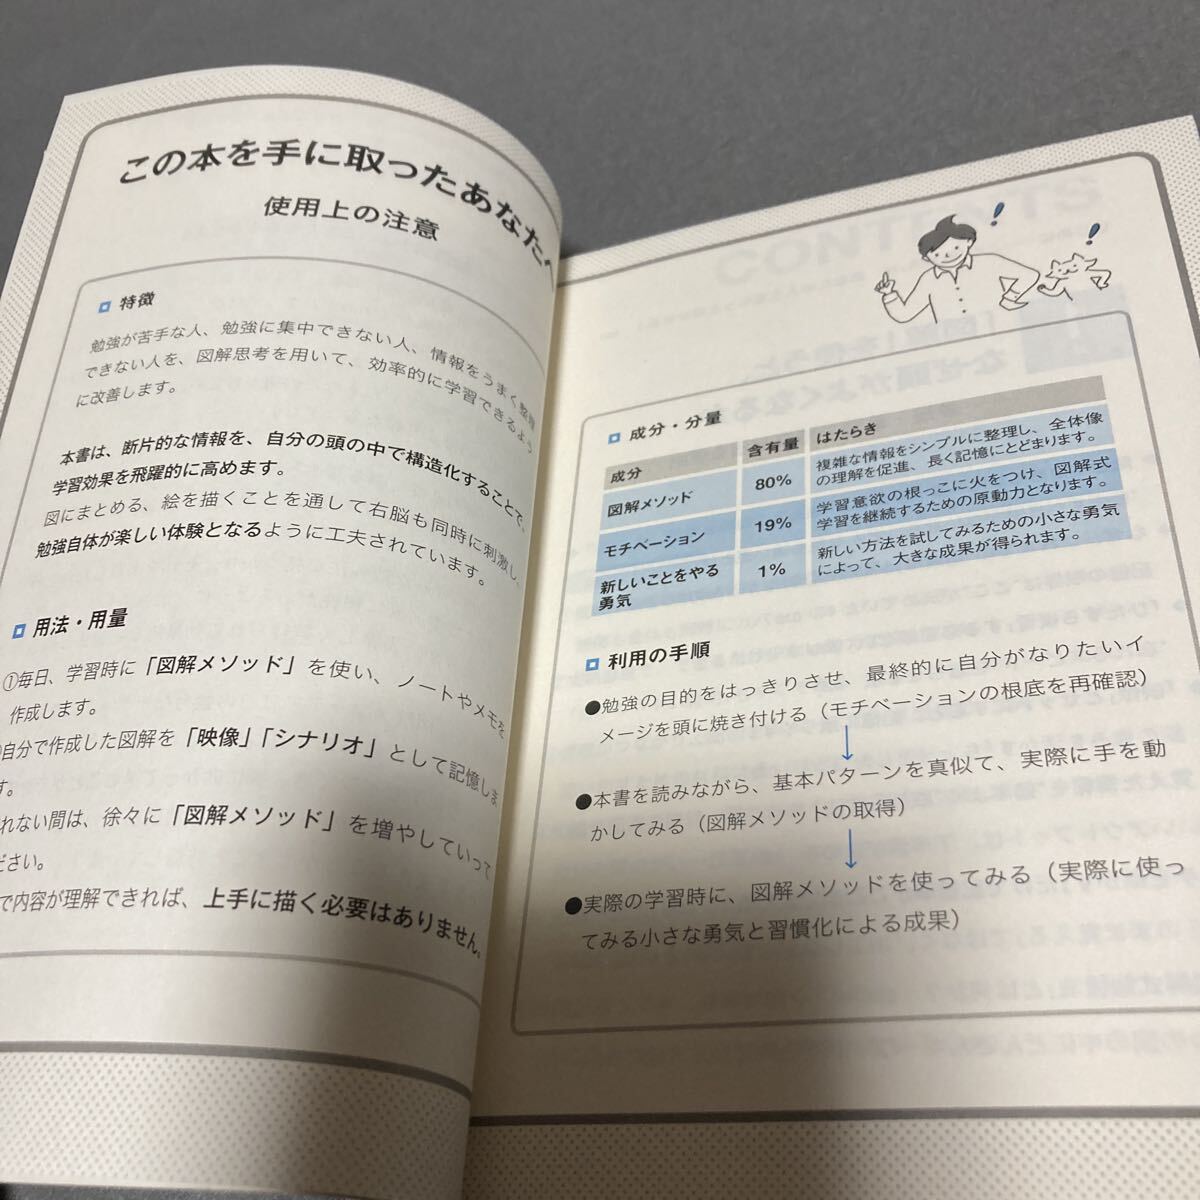 この本を手に取ったあなたへ
使用上の注意
特徴
勉強が苦手な人、勉強に集中できない人、情報をうまく整理
できない人を、図解思考を用いて、効率的に学習できるよう
に改善します。
本書は、断片的な情報を、自分の頭の中で構造化することで、
学習効果を飛躍的に高めます。
図にまとめる、絵を描くことを通して右脳も同時に刺激し、
勉強自体が楽しい体験となるように工夫されています。
用法・用量
①毎日、学習時に「図解メソッド」を使い、ノートやメモを
作成します。
自分で作成した図解を「映像」「シナリオ」として記憶しま
す。
れない間は、徐々に「図解メソッド」を増やしていって
ださい。
で内容が理解できれば、上手に描く必要はありません。
成分・分量
成分 含有量 はたらき
図解メソッド 80% 複雑な情報をシンプルに整理し、全体像
の理解を促進、長く記憶にとどまります。
モチベーション 19% 学習意欲の根っこに火をつけ、図解式
学習を継続するための原動力となります。
新しいことをやる
勇気 1% 新しい方法を試してみるための小さな勇気
によって、大きな成果が得られます。
利用の手順
●勉強の目的をはっきりさせ、最終的に自分がなりたいイ
メージを頭に焼き付ける（モチベーションの根底を再確認）
↓
●本書を読みながら、基本パターンを真似て、実際に手を動
かしてみる（図解メソッドの取得）
↓
●実際の学習時に、図解メソッドを使ってみる（実際に使っ
てみる小さな勇気と習慣化による成果）